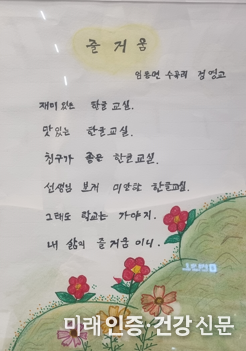 즐거움
임동면 수곡리 정영교
재미있는 한글교실.
맛있는 한글교실.
친구가 좋은 한글교실.
선생님 보기 미안한 한글교실.
그래도 학교는 가야지.
내 삶의 즐거움이니.
미래 인증·건강 신문